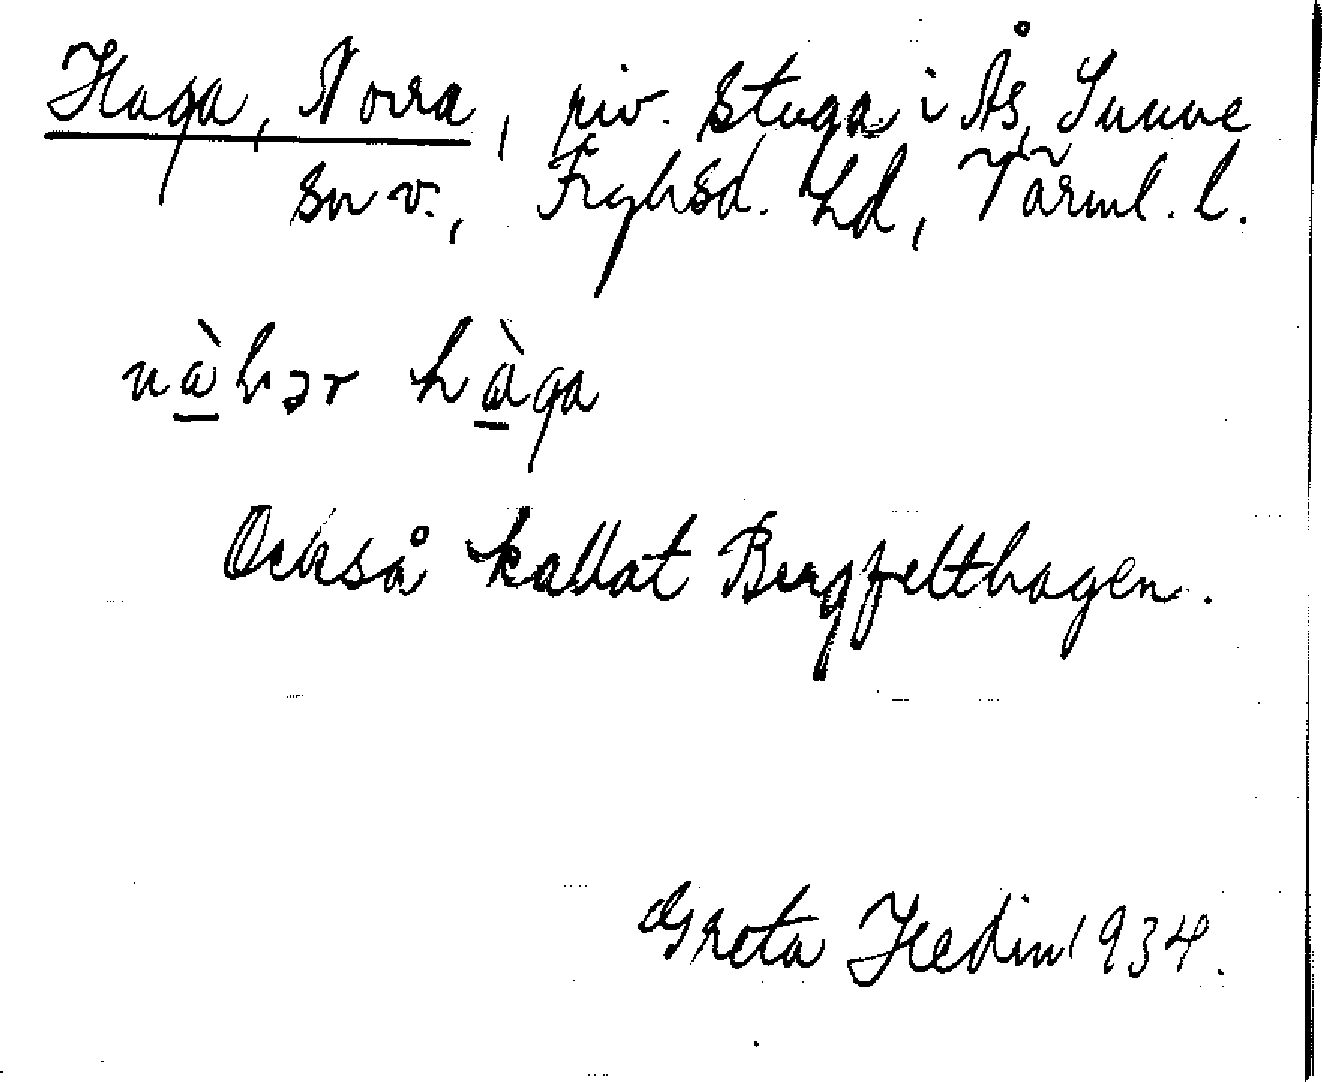 Haga, Norra, riv. stuga i Ås, Sunne
sn v., Fryksd. hd, Värml. l.
hàga
Också kallat Bergfelthagen.
Greta Hedin 1934.